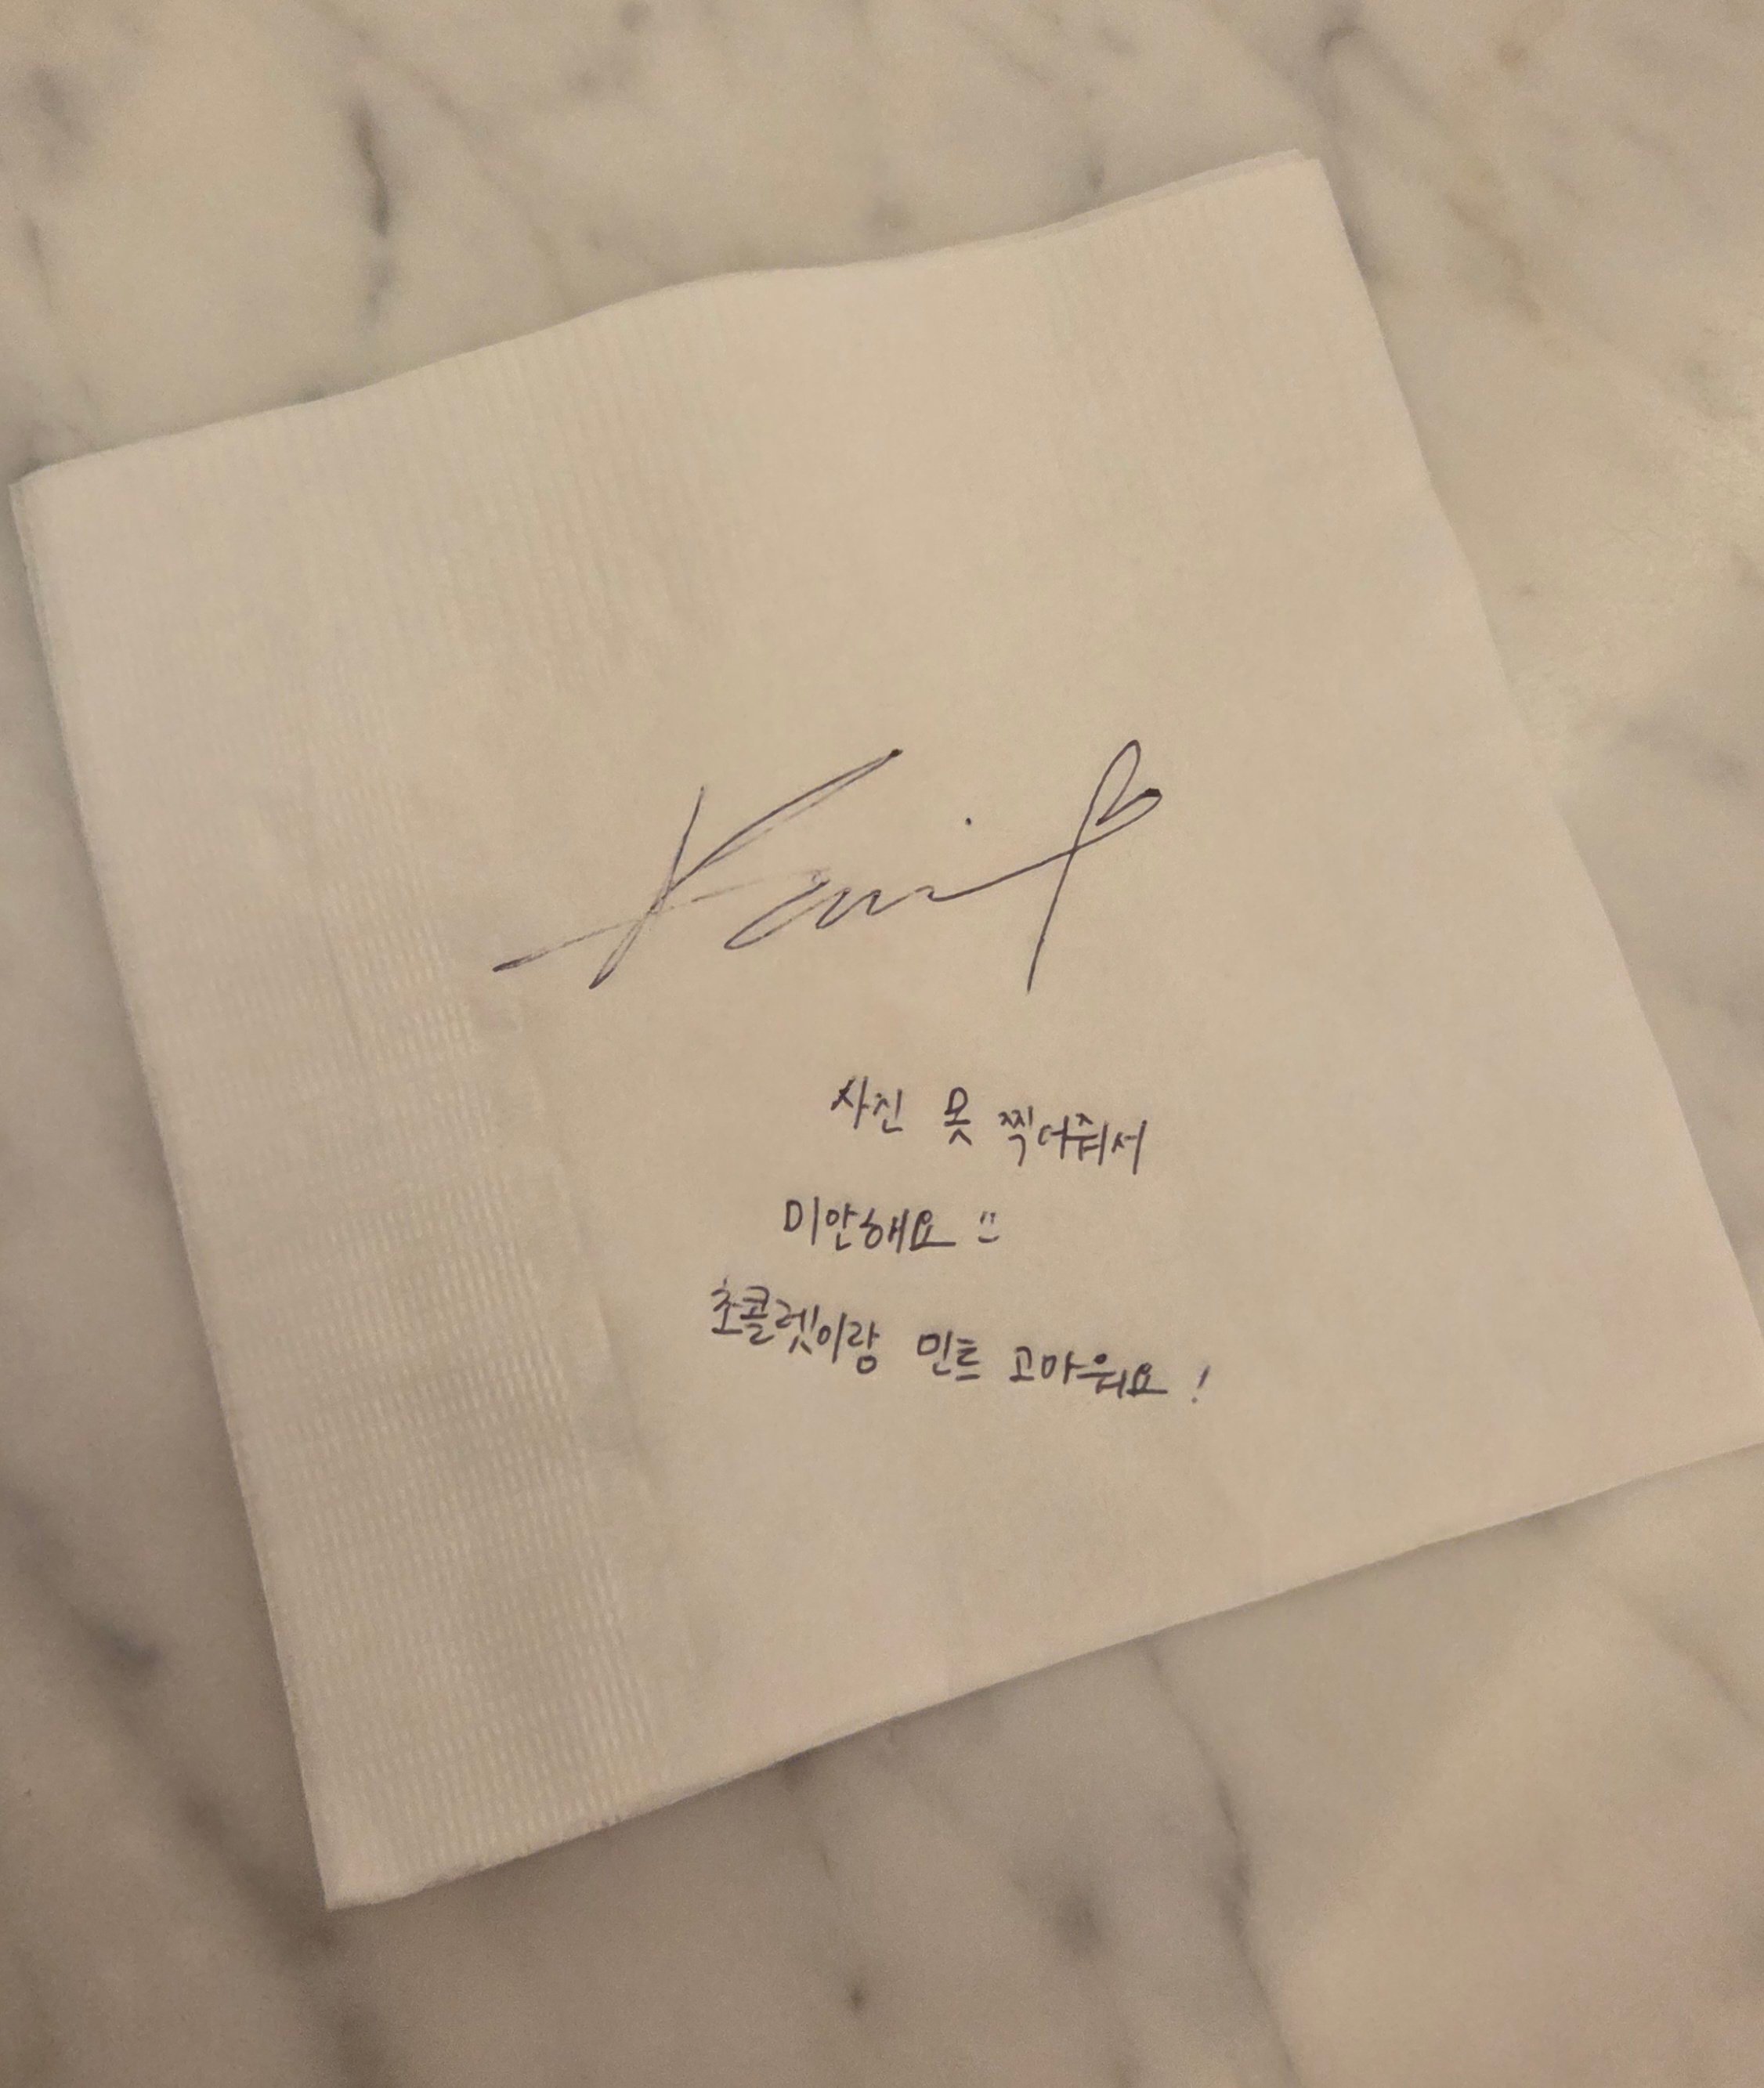 사진 못 찍어줘서
미안해요 ::
초콜렛이랑 민트 고마워요 !